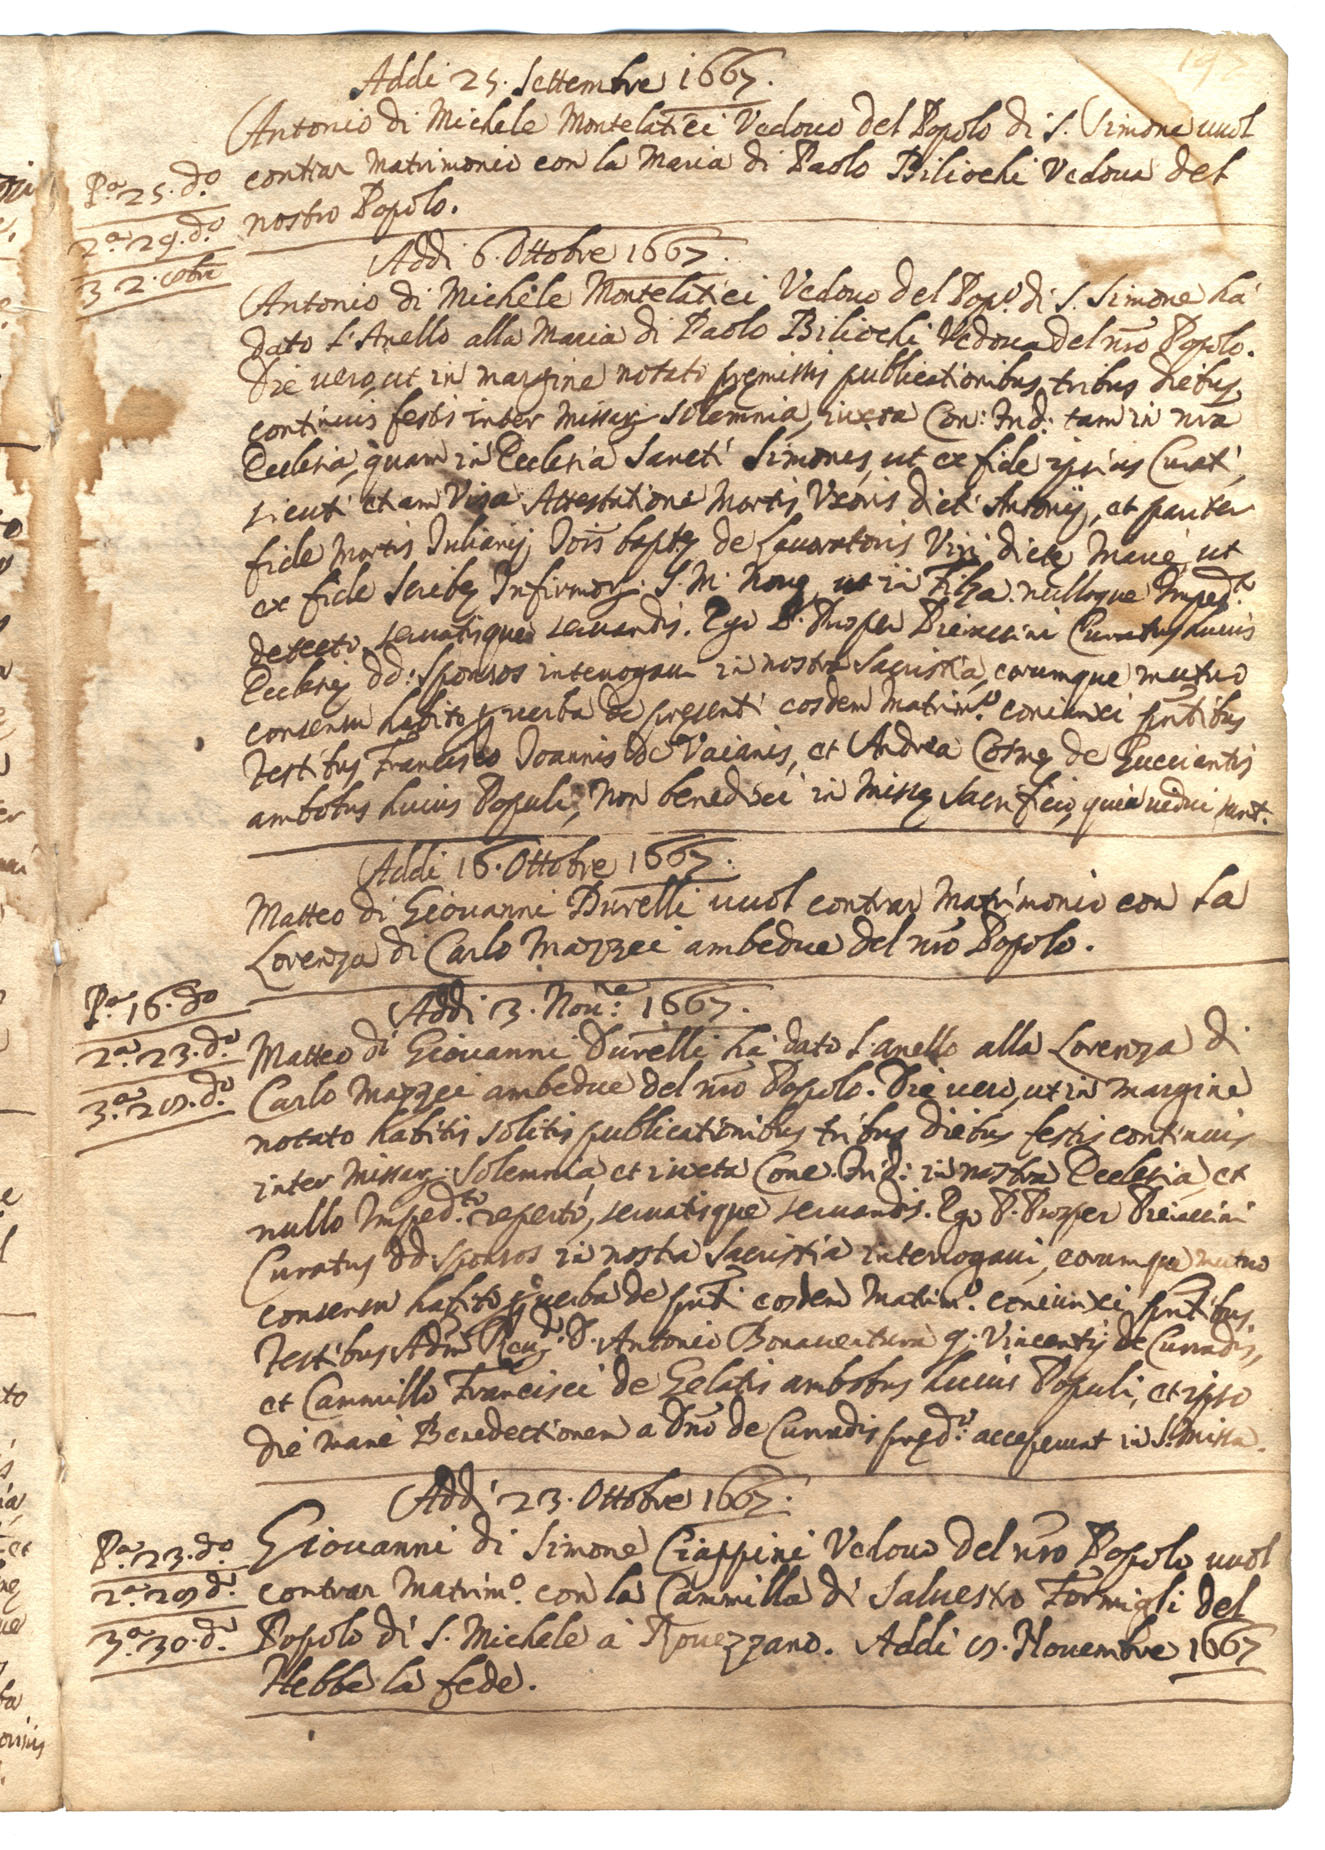 Addi 25. Settembre 1667.
Antonio di Michele Montelatici Vedouo del Popolo di S. Simone uuol
contrar Matrimonio con la Maria di Paolo Biliochi Vedoua del
nostro Popolo.
P.a 25. d.o
2.a 29. d.o
3 2. 8bre
Addi 6. Ottobre 1667.
Antonio di Michele Montelatici Vedouo del Pop.o di S. Simone hà
dato l'Anello alla Maria di Paolo Biliochi Vedoua del nro Popolo.
Die uero, ut in margine notato premissis publicationibus tribus diebus
continuis festis inter Missar. Solemnia, iuxta Con: Trid: tam in nra
Ecclesia, quam in Ecclesia Sancti Simonis, ut ex fide ipsius Curati,
sicuti etiam Visa Attestatione Mortis Vxoris dicti Antonij, et pariter
fide Mortis Iulianij Iois bapte de Lauoratoris Viri dicte Marie, ut
ex fide Scribe Infirmor. S. M. Noue, ut in Filza. nulloque Imped.to
detecto, seruatisque seruandis. Ego P. Prosper Curatus huius
Ecclesie dd: Sponsos interrogaui in nostra Sacristia, eorumque mutuo
consensu habito p uerba de presenti eosdem Matrim.o coniunxi pntibus
Testibus Francisco Ioannis de Vaianis, et Andrea Cosme de Guccientis
ambobus huius Populi, Non benedixi in Misse Sacrificio, quia uidui sunt.
Addi 16. Ottobre 1667.
Matteo di Giouanni Durelli uuol contrar Matrimonio con la
Lorenza di Carlo Mazzei ambedue del nro Popolo.
P.a 16. d.o
2.a 23. d.o
3.a 29. d.o
Addi 3. Nou.re 1667.
Matteo di Giouanni Durelli hà dato l'anello alla Lorenza di
Carlo Mazzei ambedue del nro Popolo. Die uero, ut in margine
notato habitis solitis publicationibus tribus diebus festis continuis
inter Missar. Solemnia et iuxta Conc. Trid: in nostra Ecclesia, et
nullo Imped.to reperto, seruatisque seruandis. Ego P. Prosper
Curatus dd: Sponsos in nostra Sacristia interrogaui, eorumque mutuo
consensu habito p uerba de pnti eosdem Matrim.o coniunxi pntibus
Testibus Adm Reu.do D. Antonio Bonauentura q. Vincentij de Curradis,
et Cammillo Francisci de Gelatis ambobus huius Populi, et ipso
die mane Benedictionem a Dno de Curradis pred.o acceperunt in S. Missa.
Addi 23. Ottobre 1667.
Giouanni di Simone Ciappini Vedouo del nro Popolo uuol
contrar Matrim.o con la Cammilla di Saluestro Formigli del
Popolo di S. Michele à Rouezzano. Addi 9. Nouembre 1667
Hebbe la fede.
P.a 23. d.o
2.a 29 d.o
3.a 30. d.o